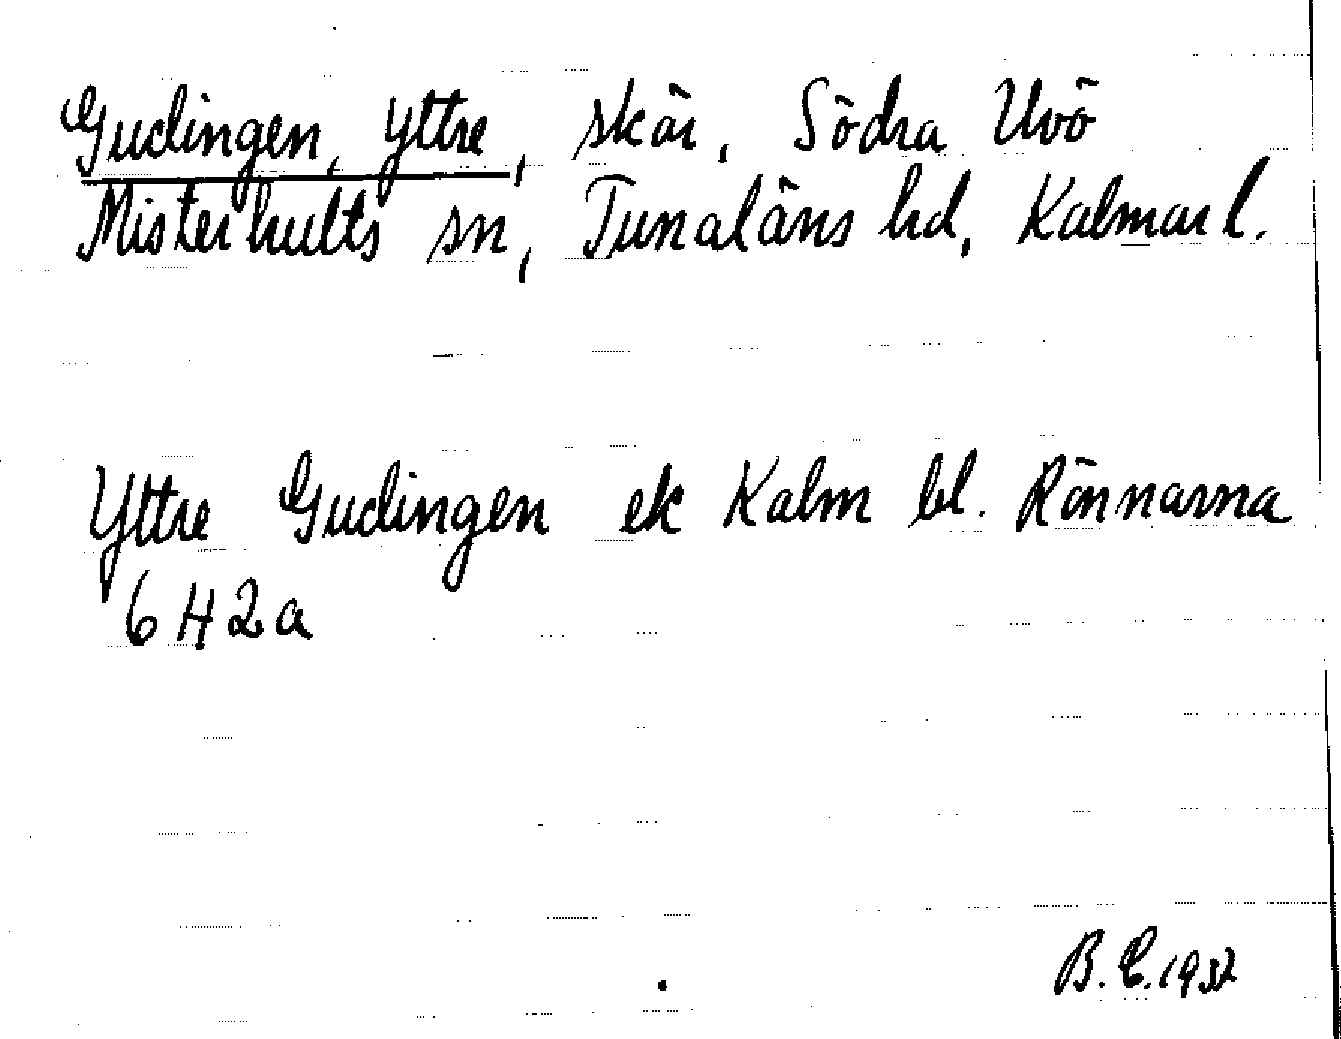 Gudingen, Yttre, skär, Södra Uvö
Misterhults sn, Tunaläns hd, Kalmar l.
Yttre Gudingen ek Kalm bl. Rönnarna
6 H 2 a
B. E. 1932